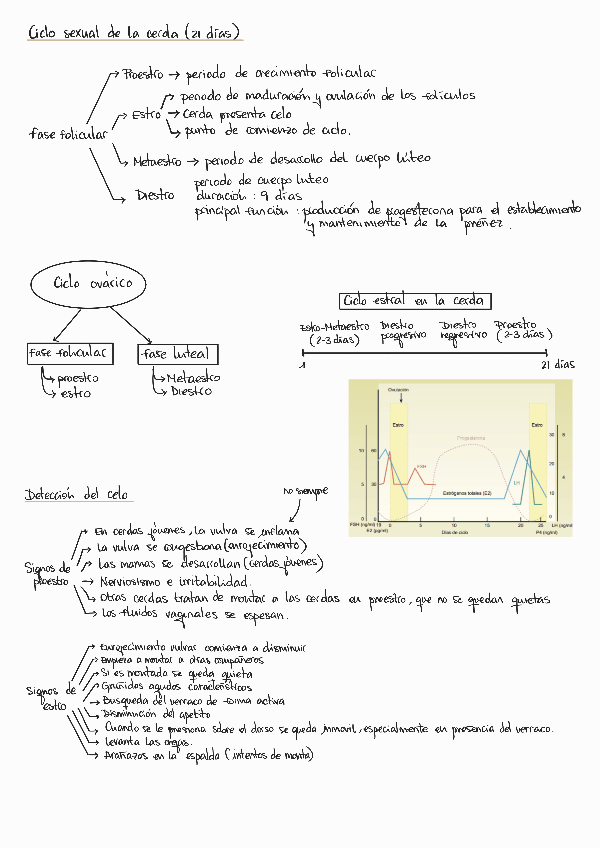 Ciclo sexual de la cerda (21 días)
Proestro → periodo de crecimiento folicular
periodo de maduración y ovulación de los folículos
Estro → Cerda presenta celo
punto de comienzo de ciclo.
Fase folicular
Metaestro → periodo de desarrollo del cuerpo lúteo
periodo de cuerpo luteo
Diestro duración : 9 días
principal función : producción de progesterona para el establecimiento
y mantenimiento de la preñez.
Ciclo ovárico
Ciclo estral en la cerda
Estro-Metaestro Diestro Diestro Proestro
(2-3 días) progresivo regresivo (2-3 días)
Fase folicular Fase luteal
1 21 días
proestro Metaestro
estro Diestro
Ovulación
Estro Estro
Progesterona
FSH
LH
Estrógenos totales (E2)
10 60 30 8
5 30 20 4
0 0 10 0
0 5 10 15 20 25
FSH (ng/ml) E2 (pg/ml) Días de ciclo P4 (ng/ml) LH (ng/ml)
Detección del celo
no siempre
En cerdas jóvenes, la vulva se inflama
La vulva se congestiona (enrojecimiento)
Las mamas se desarrollan (cerdas jóvenes)
Signos de proestro
Nerviosismo e irritabilidad.
Otras cerdas tratan de montar a las cerdas en proestro, que no se quedan quietas
Los fluidos vaginales se espesan.
Enrojecimiento vulvar comienza a disminuir
Empieza a montar a otras compañeras
Si es montada se queda quieta
Gruñidos agudos característicos
Signos de estro
Busqueda del verraco de forma activa
Disminución del apetito
Cuando se le presiona sobre el dorso se queda inmovil, especialmente en presencia del verraco.
Levanta las orejas.
Arañazos en la espalda (intentos de monta)